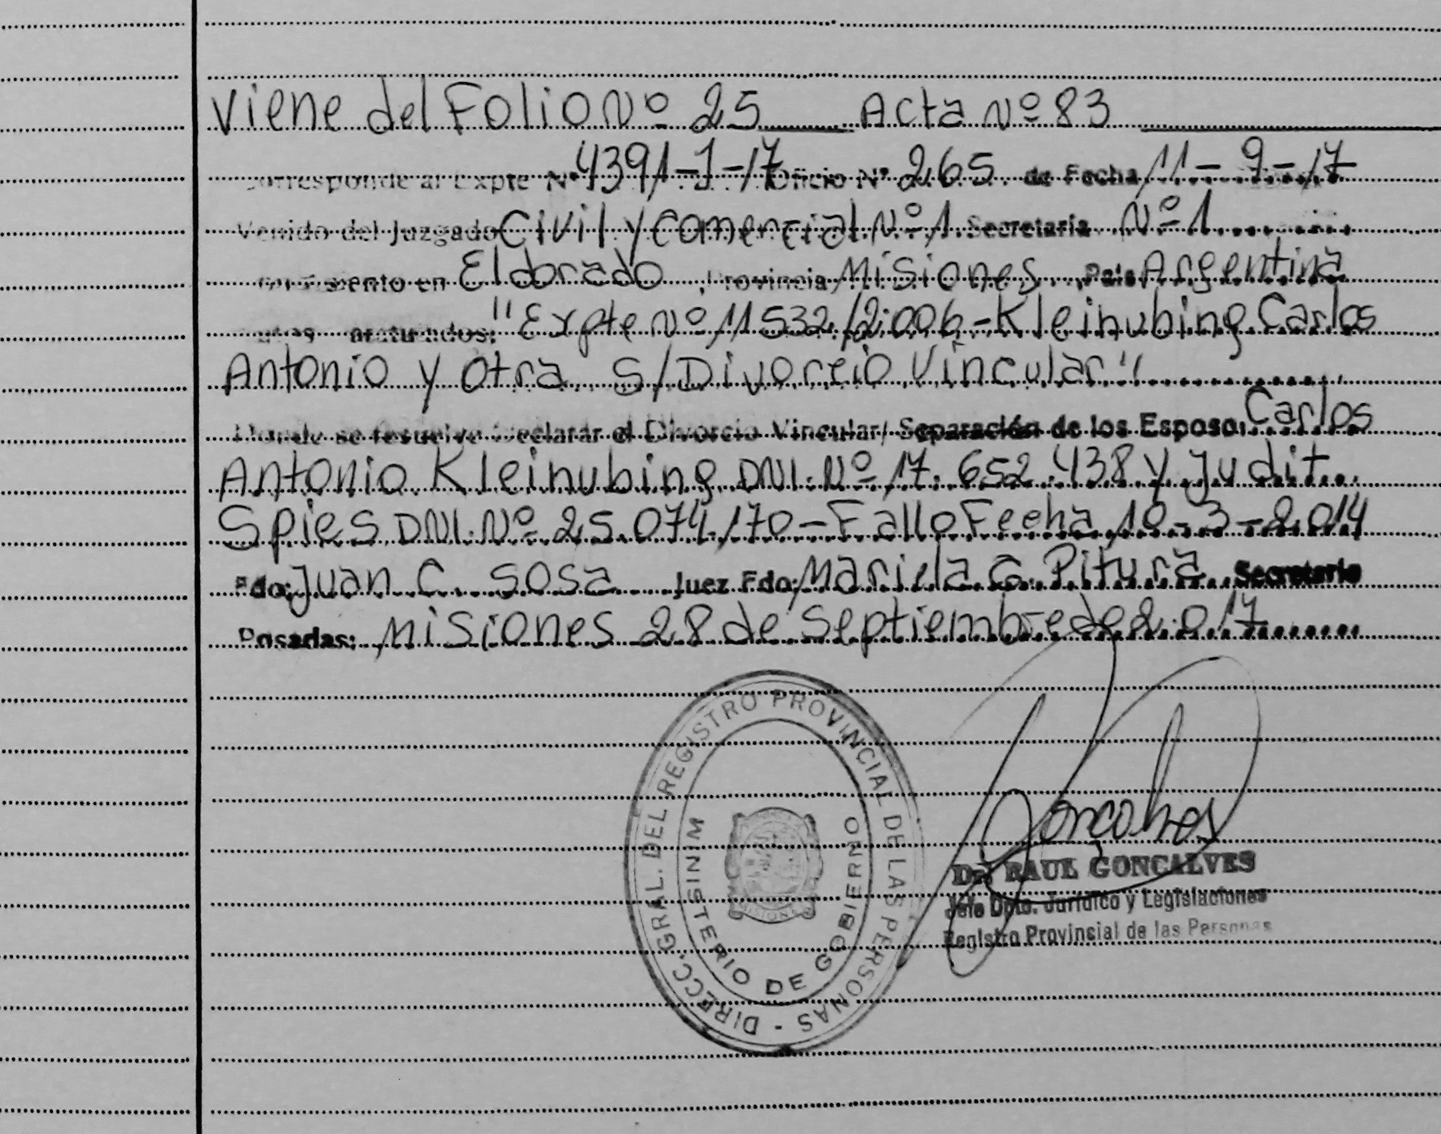 Viene del Folio Nº 25 Acta Nº 83
Corresponde al Expte Nº 4391-J-17 Oficio Nº 265 de Fecha 11-9-17
Venido del Juzgado Civil y Comercial Nº 1 Secretaria Nº 1
en Eldorado, Provincia Misiones, Pais Argentina
"Expte Nº 11532/2.006-Kleinubing Carlos
Antonio y otra S/Divorcio Vincular"
Donde se resuelve Declarar el Divorcio Vincular/Separación de los Esposo: Carlos
Antonio Kleinubing DNI. Nº 17.652.438 y Judit
Spies DNI. Nº 25.074.170-Fallo Fecha 10-3-2.014
Fdo: Juan C. Sosa Juez Fdo: Mariela G. Pitura Secretario
Posadas: Misiones 28 de Septiembre de 2.017
DIRECC. GRAL. DEL REGISTRO PROVINCIAL DE LAS PERSONAS -
MINISTERIO DE GOBIERNO
MISIONES
Gonçalves
Dr. RAUL GONCALVES
Jefe Dpto. Jurídico y Legislaciones
Registro Provincial de las Personas